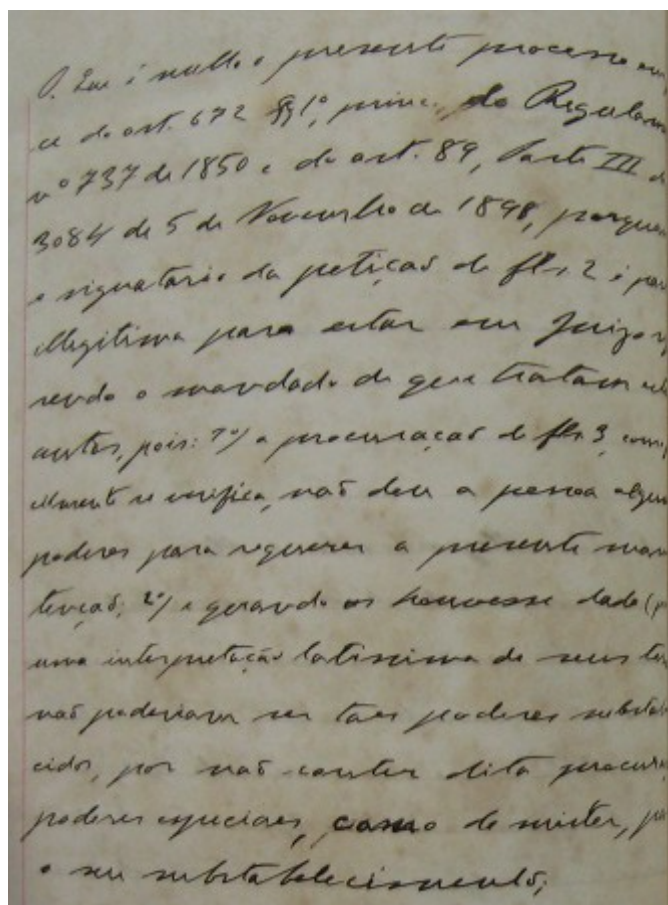 P. Que é nullo o presente processo em
ce do art. 672 §§1º, princ., do Regulam
nº 737 de 1850 e do art. 89, Parte III do
3084 de 5 de Novembro de 1898, porquan
o signatario da petição de fls 2 é par
illegitima para estar em Juizo
rendo o mandado de que tratam est
autos, pois: 1º/ a procuração de fls 3, com
claramente se verifica, não deu a pessoa algum
poderes para requerer a presente manu
tenção; 2º/ e quando os houvesse dado (p
uma interpretação latissima de seus ter
não poderiam ser taes poderes substab
cidos, por não conter dita procura
poderes especiaes, como de mister, pa
o seu substabelecimento;